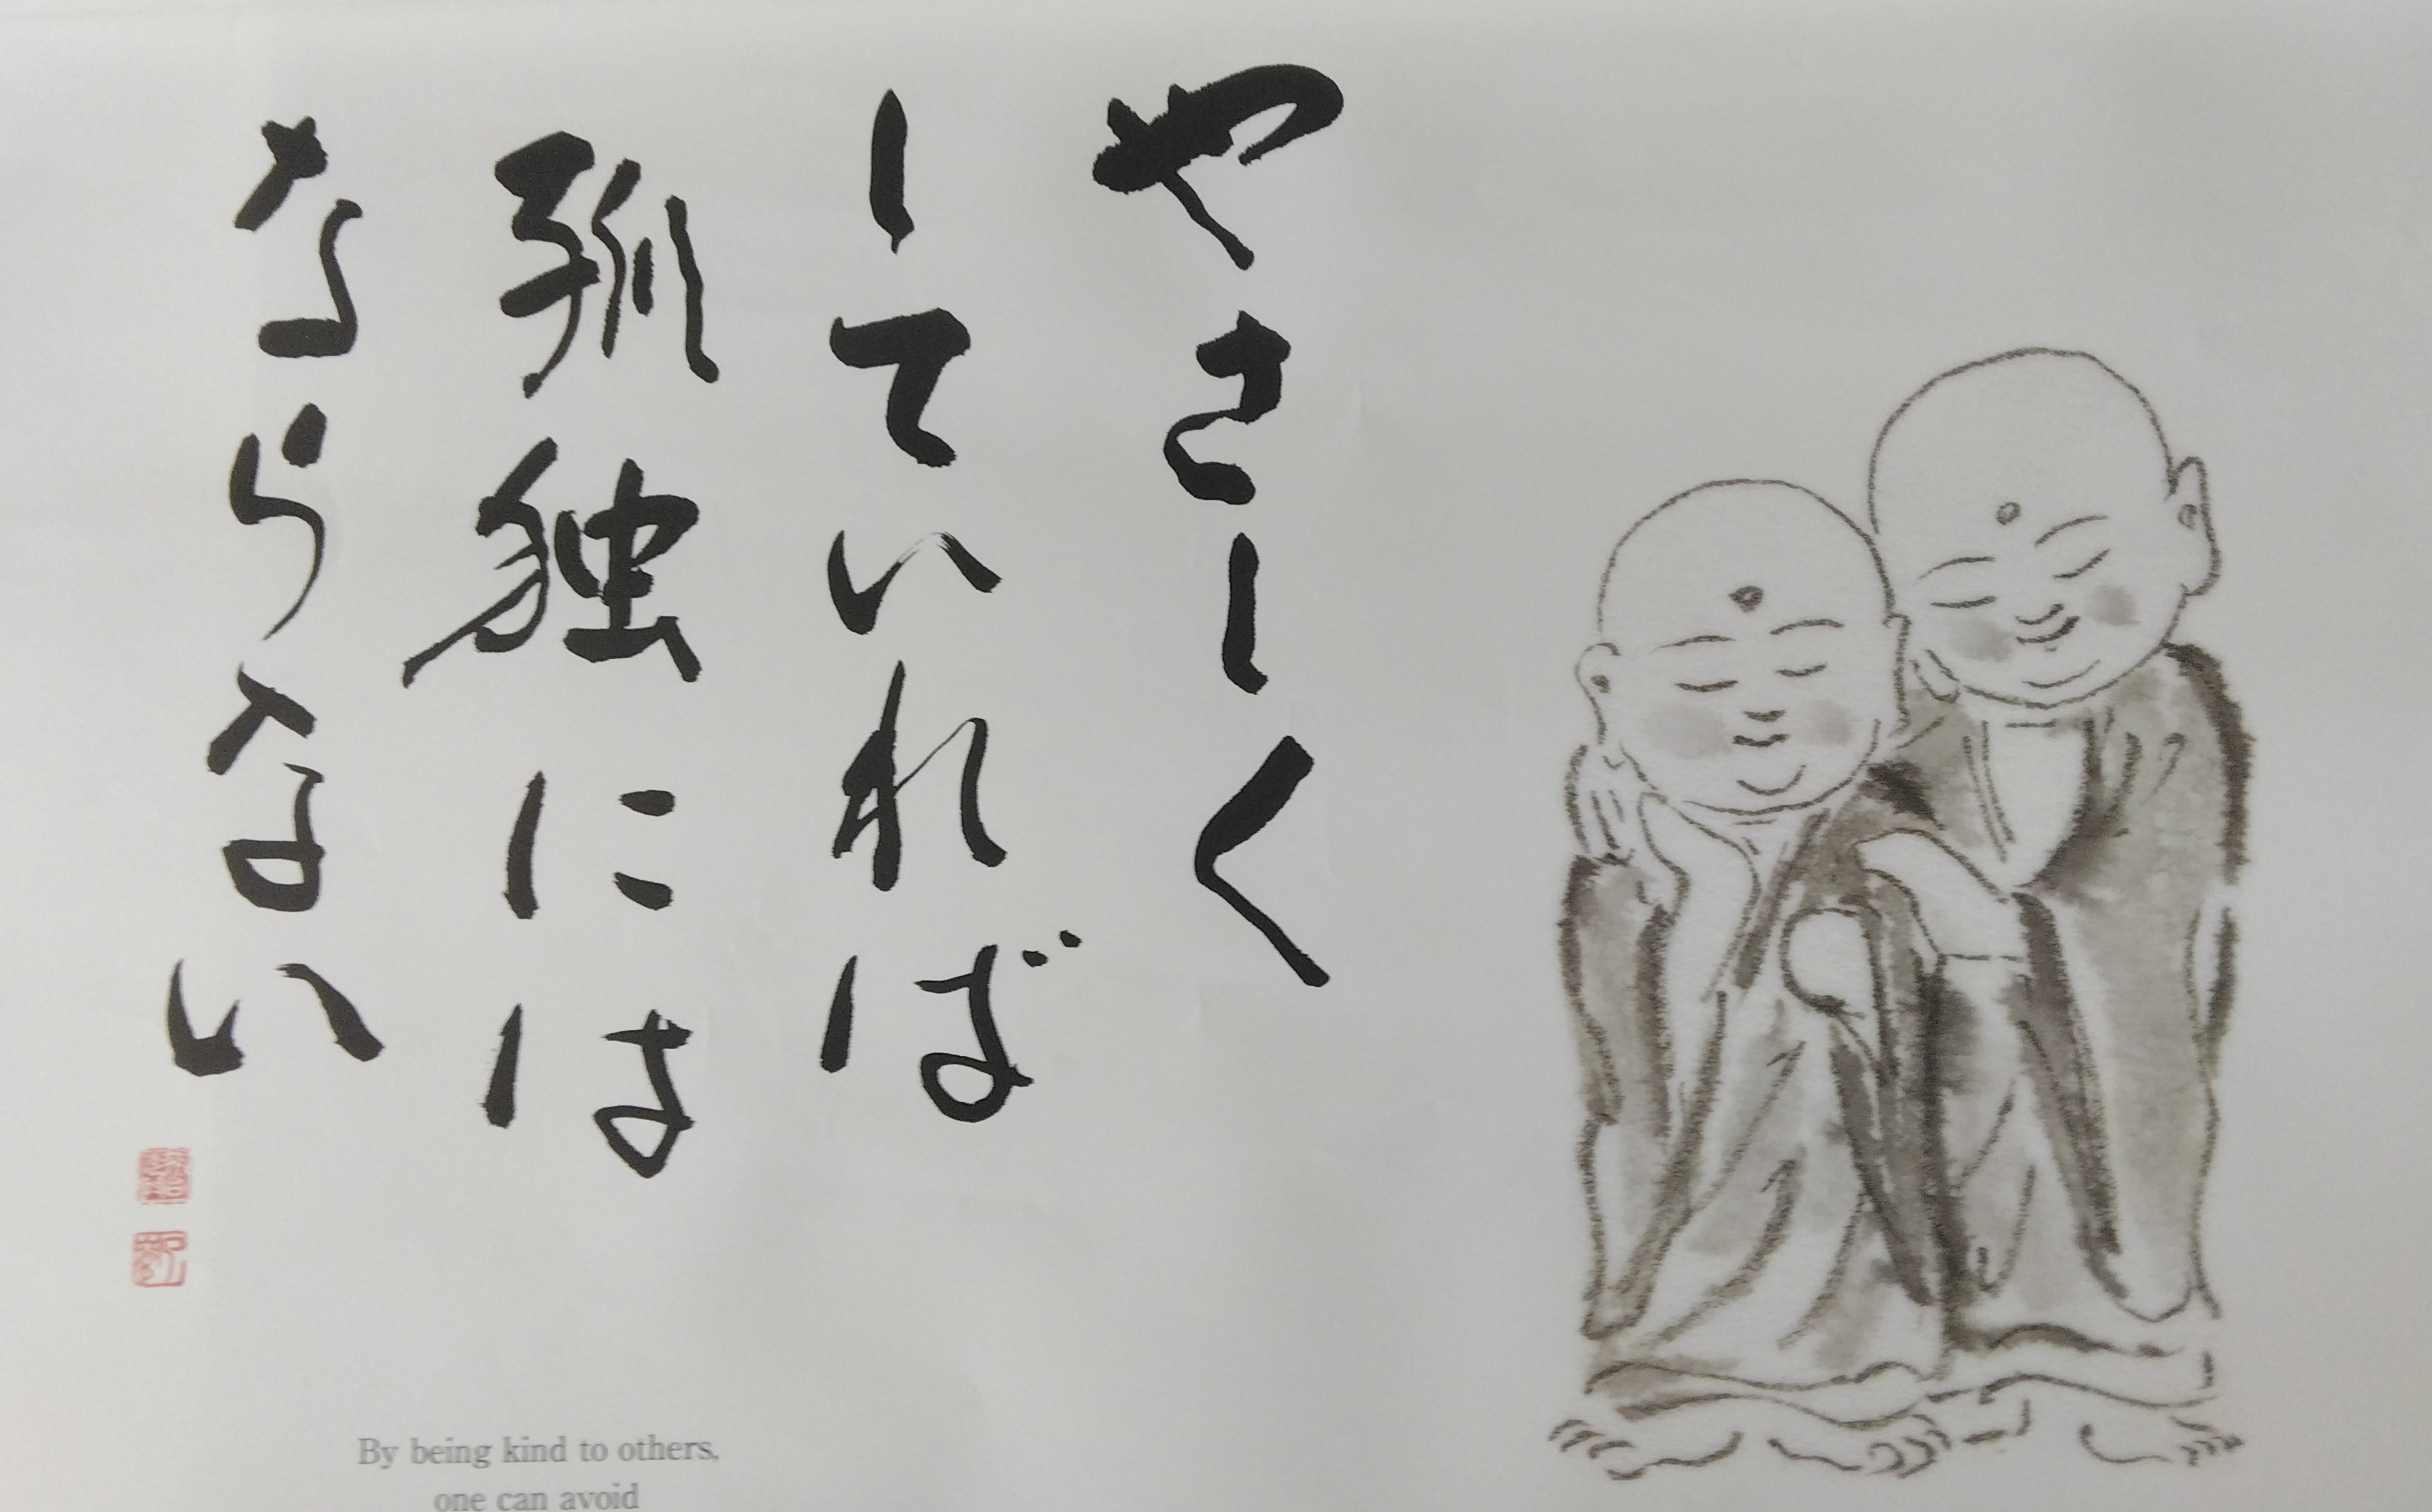 やさしく
していれば
孤独には
ならない
By being kind to others,
one can avoid